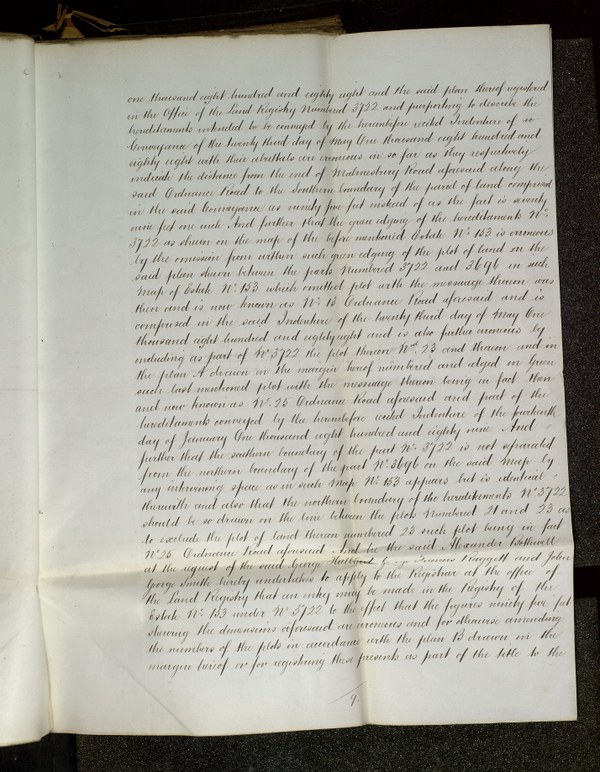 one thousand eight hundred and eighty eight and the said plan thereof registered
in the Office of the Land Registry Numbered 3722 and purporting to describe the
hereditaments intended to be conveyed by the hereinbefore recited Indenture of
Conveyance of the twenty third day of May One thousand eight hundred and
eighty eight with their abuttals are erroneous in so far as they respectively
indicate the distance from the end of Malmesbury Road aforesaid along the
said Ordnance Road to the Southern boundary of the parcel of land comprised
in the said Conveyance as ninety five feet instead of as the fact is seventy
nine feet one inch And further that the green edging of the hereditaments No.
3722 as shewn on the map of the before mentioned Estate No. 153 is erroneous
by the omission from within such green edging of the plot of land on the
said plan shewn between the parts Numbered 3722 and 3696 on such
Map of Estate No. 153 which omitted plot with the messuage thereon was
then and is now known as No. 13 Ordnance Road aforesaid and is
comprised in the said Indenture of the twenty third day of May One
thousand eight hundred and eighty eight and is also further erroneous by
including as part of No 3722 the plot thereon Nod. 23 and thereon and in
the plan A drawn in the margin hereof numbered and edged in Green
such last mentioned plot with the messuage thereon being in fact then
and now known as No. 25 Ordnance Road aforesaid and part of the
hereditaments conveyed by the hereinbefore recited Indenture of the fourteenth
day of January One thousand eight hundred and eighty nine And
further that the southern boundary of the part No. 3722 is not separated
from the northern boundary of the part No. 3696 on the said Map by
any intervening space as in such Map No. 153 appears but is identical
therewith and also that the northern boundary of the hereditaments No 3722
should be so drawn on the line between the plots Numbered 21 and 23 as
to exclude the plot of land thereon numbered 23 such plot being in fact
No. 25 Ordnance Road aforesaid And he the said Alexander Bothwell
at the request of the said George Francis Baggett and John
George Smith hereby undertakes to apply to the Registrar at the office of
the Land Registry that an entry may be made in the Registry of the
Estate No. 153 under No 3722 to the effect that the figures ninety five feet
shewing the dimensions aforesaid are erroneous and for otherwise amending
the numbers of the plots in accordance with the plan B drawn in the
margin hereof or for registering these presents as part of the title to the
9.